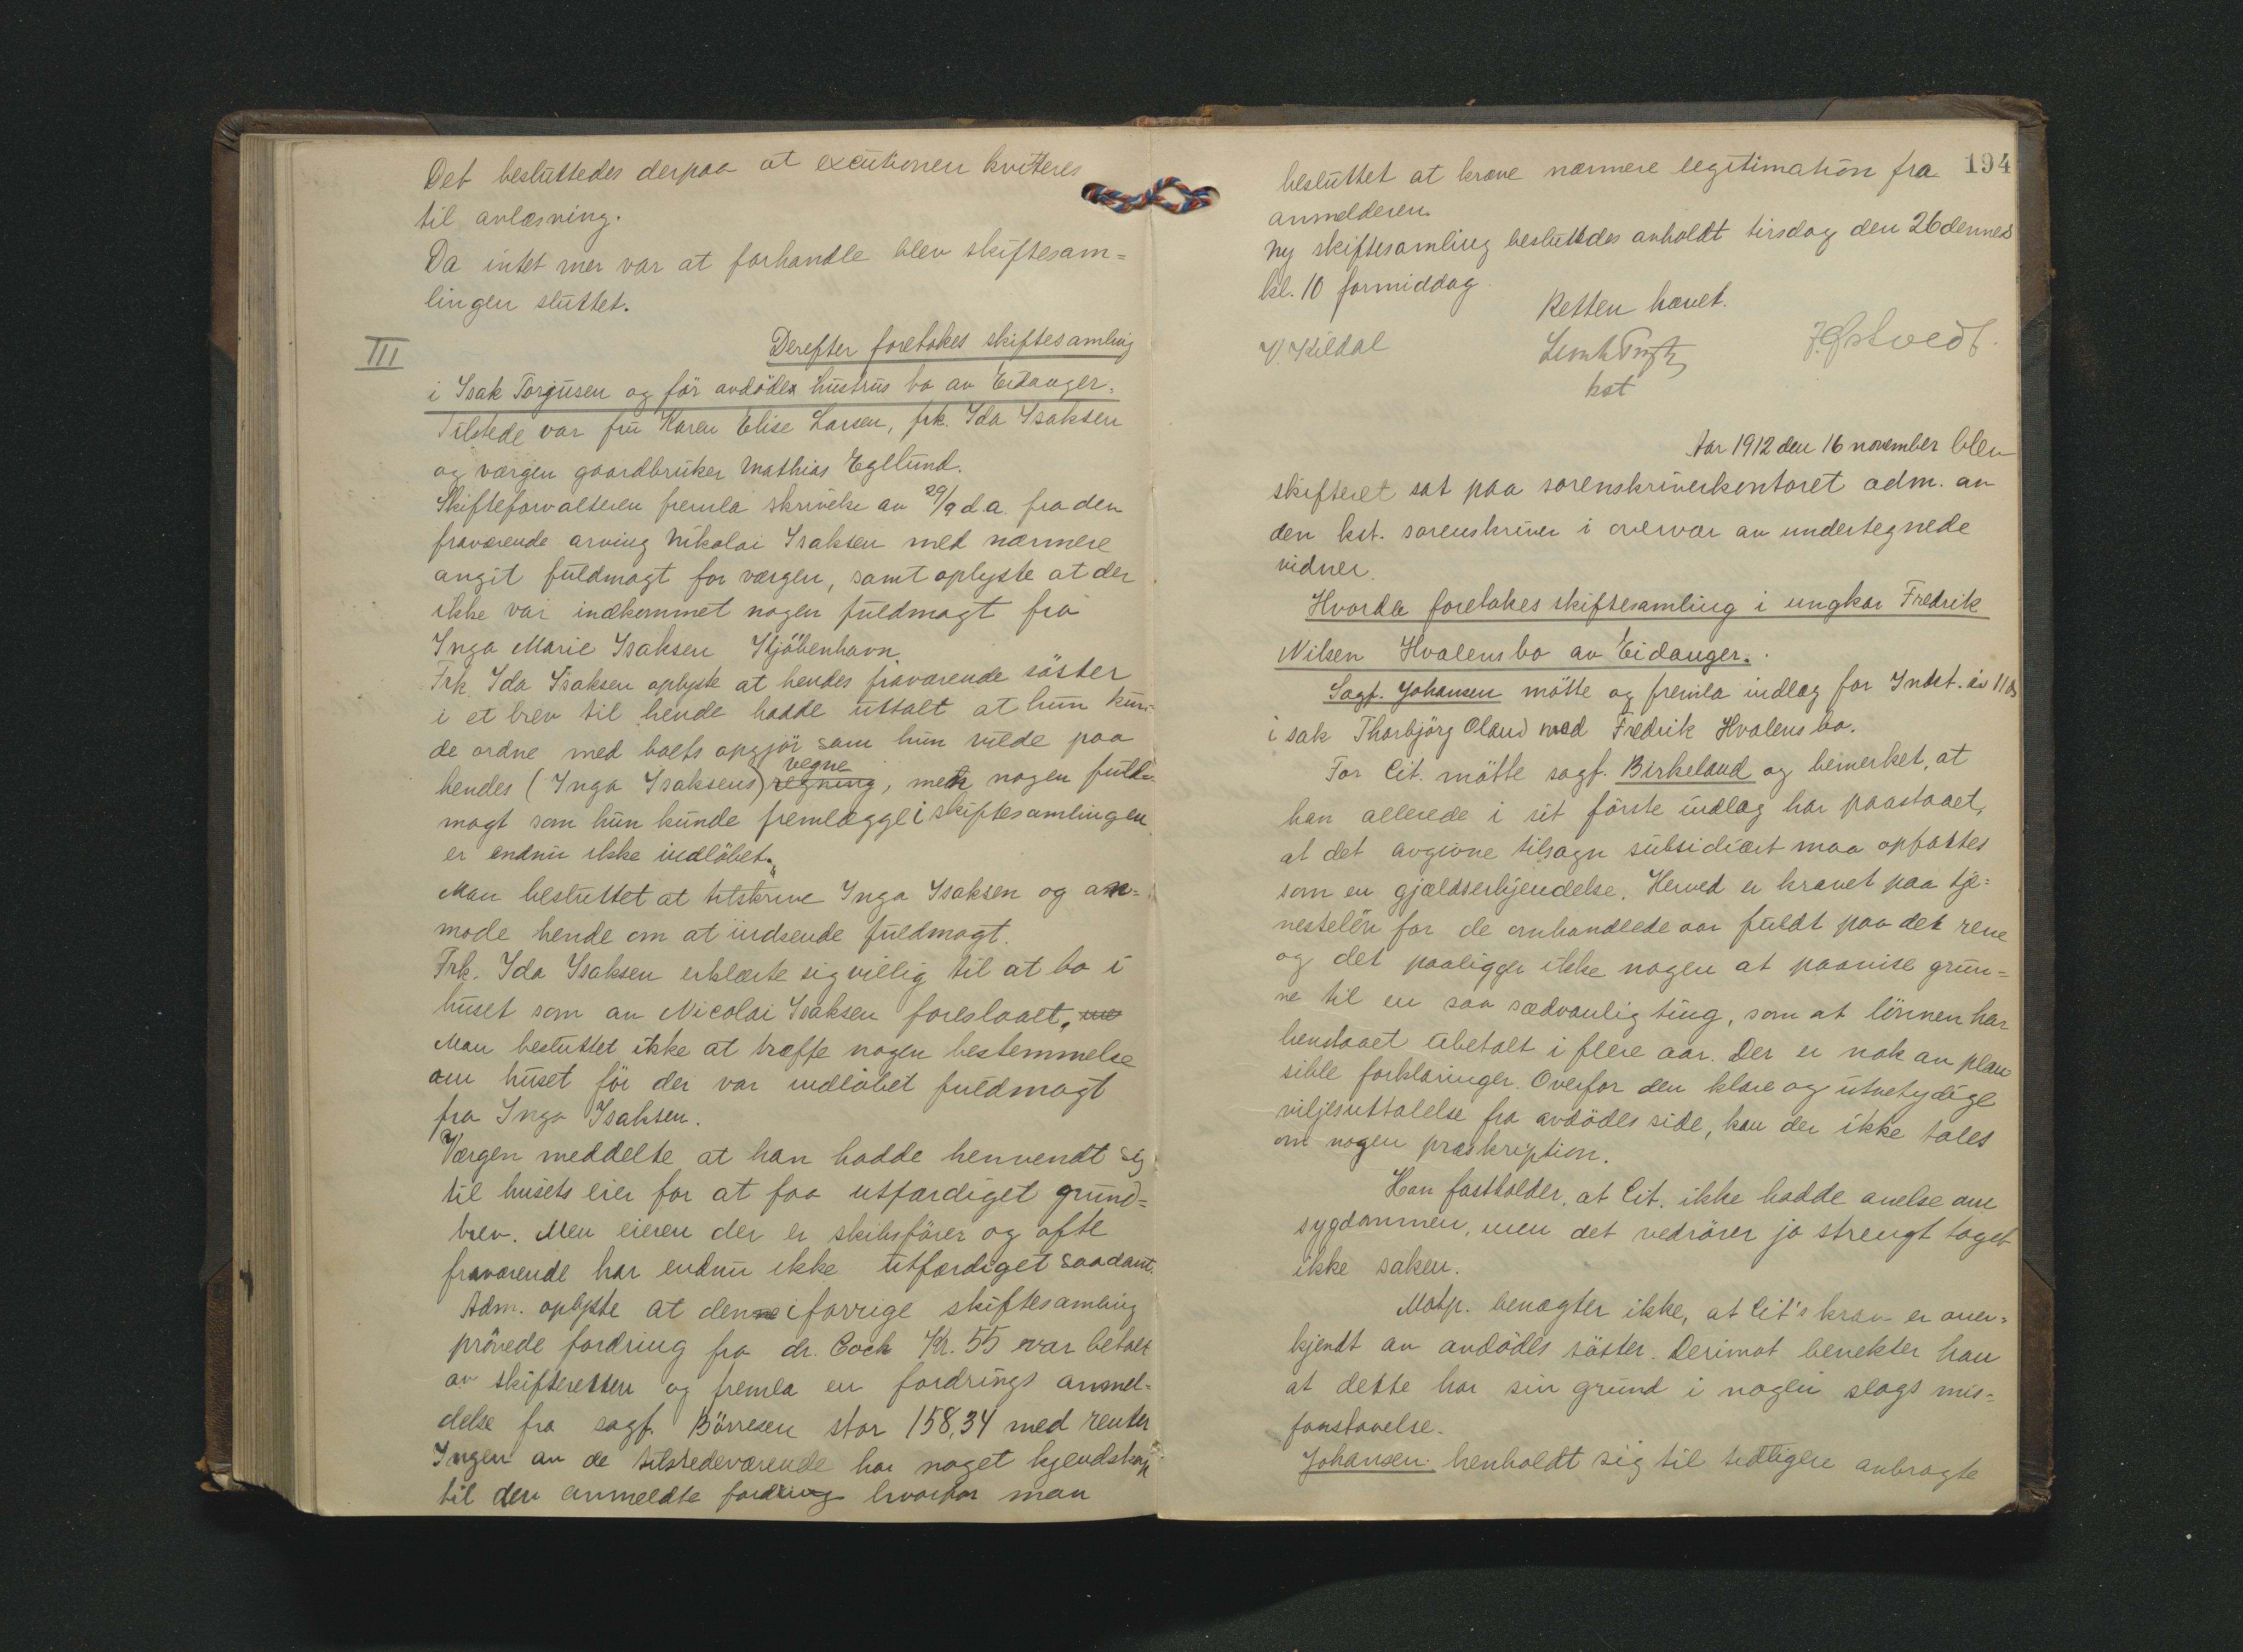 Det besluttedes derpaa at excutionen kvitteres
til avlæsning.
Da intet mer var at forhandle blev skiftesam=
lingen sluttet.
III
Derefter foretokes skiftesamling
i Isak Torgusen og før avdødes hustrus bo av Eidanger.
Tilstede var fru Karen Elise Larsen, frk. Ida Isaksen
og vergen gaardbruker Mathias Eglund.
Skifteforvalteren fremla skrivelse av 29/9 d.a. fra den
fraværende arving Nikolai Isaksen med nærmere
angit fuldmagt for vergen, samt oplyste at der
ikke var indkommet nogen fuldmagt fra
Inga Marie Isaksen Kjøbenhavn.
Frk. Ida Isaksen oplyste at hendes fraværende søster
i et brev til hende hadde uttalt at hun kun-
de ordne med boets opgjør som hun vilde paa
hendes (Inga Isaksens) regning vegne, men nogen fuld=
magt som hun kunde fremlægge i skiftesamlingen
er endnu ikke indløbet.
Man besluttet at tilskrive Inga Isaksen og an=
mode hende om at indsende fuldmagt.
Frk. Ida Isaksen erklærte sig villig til at bo i
huset som av Nicolai Isaksen foreslaaet,
Man besluttet ikke at træffe nogen bestemmelse
om huset før der var indløbet fuldmagt
fra Inga Isaksen.
Vergen meddelte at han hadde henvendt sig
til husets eier for at faa utfærdiget grund=
brev. Men eieren der er skibsfører og ofte
fraværende har endnu ikke utfærdiget saadant.
Adm. oplyste at den i forrige skiftesamling
prøvede fordring fra dr. Coch Kr. 55 var betalt
av skifteretten og fremla en fordrings anmel=
delse fra sagf. Børresen stor 158,34 med renter
Ingen av de tilstedeværende har noget kjendskap
til den anmeldte fordring hvorfor man
194
besluttet at kræve nærmere legitimation fra
anmelderen.
Ny skiftesamling besluttedes avholdt tirsdag den 26 dennes
kl. 10 formiddag.
Retten hævet.
V. Kildal
kst
J. Østvedt.
Aar 1912 den 16 november blev
skifteret sat paa sorenskriverkontoret adm. av
den kst. sorenskriver i overvær av undertegnede
vidner.
Hvorda foretokes skiftesamling i ungkar Fredrik
Nilsen Hvalens bo av Eidanger.
Sagf. Johansen møtte og fremla indlæg for Indst. av 11 ds
i sak Thorbjørg Oland mod Fredrik Hvalens bo.
For Cit. møtte sagf. Birkeland og bemerket, at
han allerede i sit første indlæg har paastaaet,
at det avgivne tilsagn subsidiært maa opfattes
som en gjældserkjendelse. Herved er kravet paa tje=
nesteløn for de omhandlede aar fuldt paa det rene
og det paaligger ikke nogen at paavise grun=
ne til en saa sædvanlig ting, som at lønnen har
henstaaet ubetalt i flere aar. Der er nok av plau
sible forklaringer. Overfor den klare og utvetydige
viljesuttalelse fra avdødes side, kan der ikke tales
om nogen præskription.
Han fastholder, at Cit. ikke hadde anelse om
sygdommen, men det vedrører jo strengt taget
ikke saken.
Motp. benægter ikke, at Cit's krav er aner=
kjendt av avdødes søster. Derimot benekter han
at dette har sin grund i nogen slags mis=
forstaaelse.
Johansen henholdt sig til tidligere anbragte